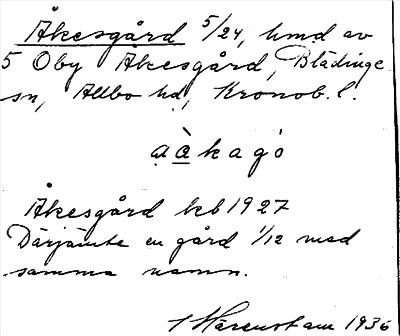 Åkesgård 5/24, hmd av
5 Oby Åkesgård, Blädinge
sn, Allbo hd, Kronob. l.
kagó
Åkesgård kb 1927
Därjämte en gård 1/12 med
samma namn.
1936